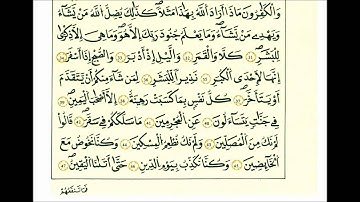 وَالْكَٰفِرُونَ مَاذَآ أَرَادَ اللَّهُ بِهَٰذَا مَثَلًا ۚ كَذَٰلِكَ يُضِلُّ اللَّهُ مَن يَشَآءُ
وَيَهْدِى مَن يَشَآءُ ۚ وَمَا يَعْلَمُ جُنُودَ رَبِّكَ إِلَّا هُوَ ۚ وَمَا هِىَ إِلَّا ذِكْرَىٰ
لِلْبَشَرِ ٣١ كَلَّا وَالْقَمَرِ ٣٢ وَالَّيْلِ إِذْ أَدْبَرَ ٣٣ وَالصُّبْحِ إِذَآ أَسْفَرَ ٣٤
إِنَّهَا لَإِحْدَى الْكُبَرِ ٣٥ نَذِيرًا لِّلْبَشَرِ ٣٦ لِمَن شَآءَ مِنكُمْ أَن يَتَقَدَّمَ
أَوْ يَتَأَخَّرَ ٣٧ كُلُّ نَفْسٍۭ بِمَا كَسَبَتْ رَهِينَةٌ ٣٨ إِلَّآ أَصْحَٰبَ الْيَمِينِ ٣٩
فِى جَنَّٰتٍ يَتَسَآءَلُونَ ٤٠ عَنِ الْمُجْرِمِينَ ٤١ مَا سَلَكَكُمْ فِى سَقَرَ ٤٢ قَالُوا۟
لَمْ نَكُ مِنَ الْمُصَلِّينَ ٤٣ وَلَمْ نَكُ نُطْعِمُ الْمِسْكِينَ ٤٤ وَكُنَّا نَخُوضُ مَعَ
الْخَآئِضِينَ ٤٥ وَكُنَّا نُكَذِّبُ بِيَوْمِ الدِّينِ ٤٦ حَتَّىٰٓ أَتَىٰنَا الْيَقِينُ ٤٧
فَمَا تَنفَعُهُمْ